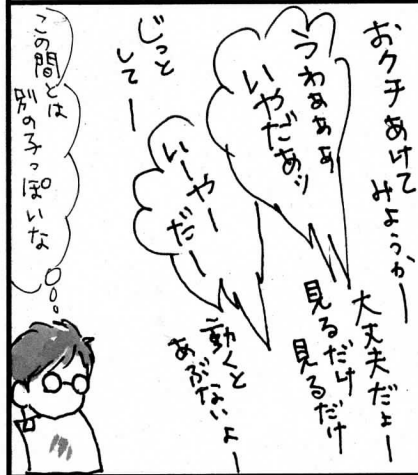 おクチあけて
みようかー
うわぁぁぁ
いやだあッ
大丈夫だよー
見るだけ
見るだけ
じっと
してー
いーやー
だー
動くと
あぶないよー
この間とは
別の子っぽいな